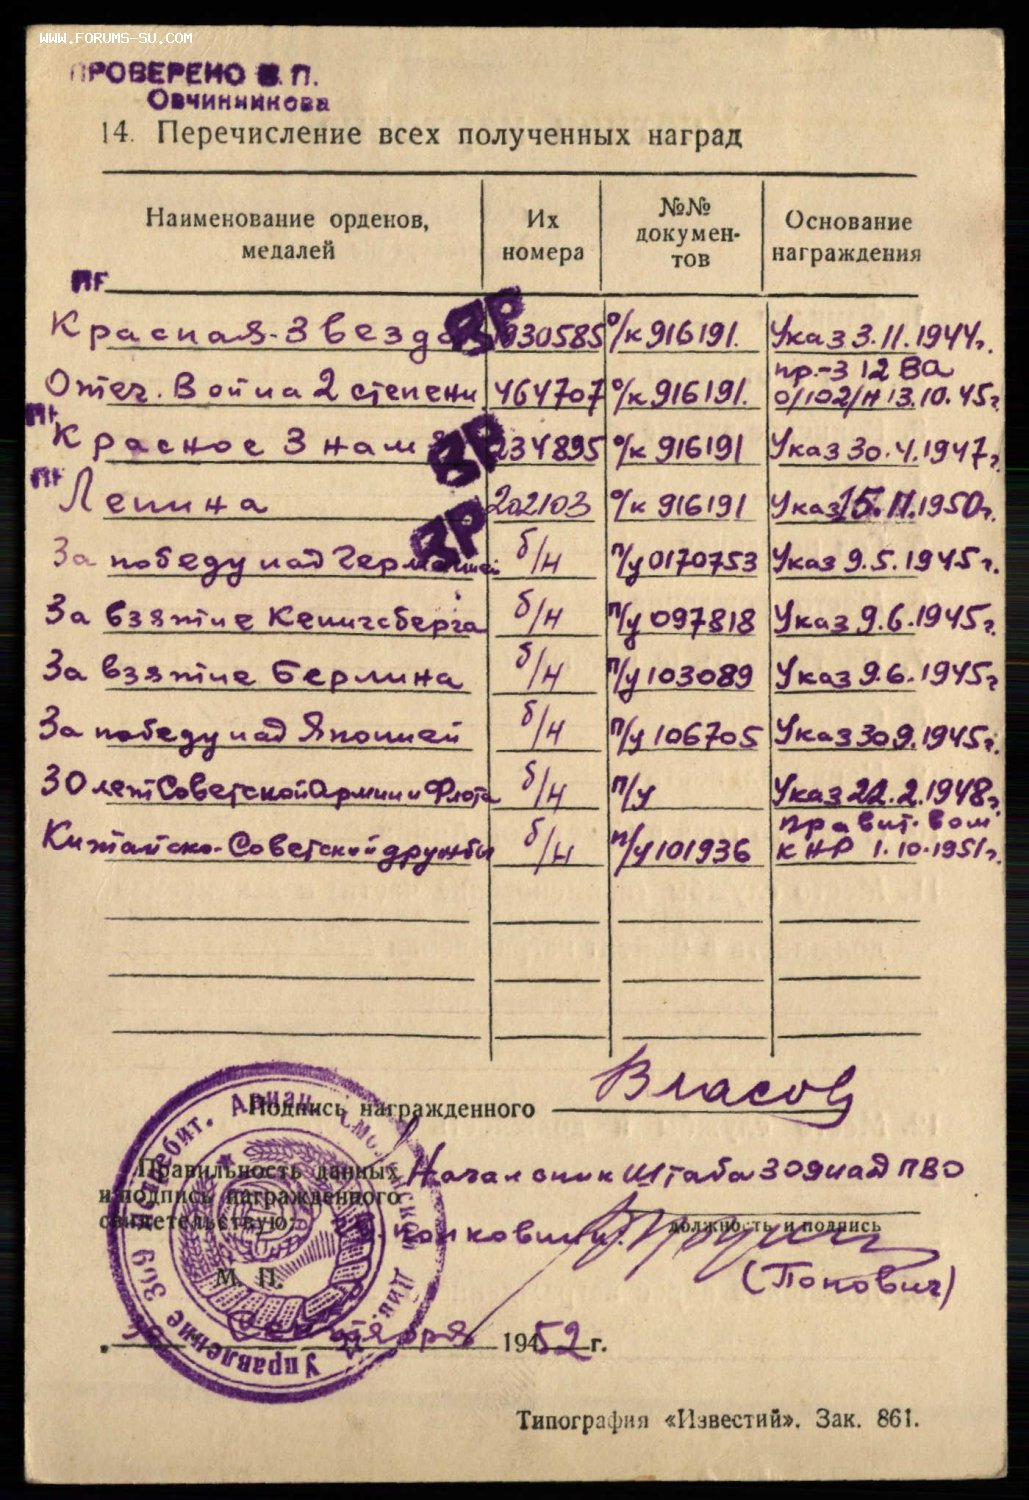 WWW.FORUMS-SU.COM
ПРОВЕРЕНО В.П.
Овчинникова
14. Перечисление всех полученных наград
Наименование орденов, медалей Их номера №№ докумен-тов Основание награждения
ПГ
Красная-Звезда ВР 930585 о/к 916191. Указ 3.11.1944г.
Отеч. Война 2 степени 464707 о/к 916191. пр-з 12 ВА 0/102/н 13.10.45г.
Красное Знамя ВР 234895 о/к 916191 Указ 30.4.1947г.
Ленина 202103 о/к 916191 Указ 15.11.1950г.
ВР
За победу над Германией б/н п/у 0170753 Указ 9.5.1945г.
За взятие Кенигсберга б/н п/у 097818 Указ 9.6.1945г.
За взятие Берлина б/н п/у 103089 Указ 9.6.1945г.
За победу над Японией б/н п/у 106705 Указ 30.9.1945г.
30 лет Советской Армии и Флота б/н п/у Указ 22.2.1948г.
Китайско-Советской дружбы б/н п/у 101936 правит-вом КНР 1.10.1951г.
Подпись награжденного Власов
Правильность данных и подпись награжденного свидетельствую:
Начальник штаба 309 иад ПВО
должность и подпись
(Попович)
М. П.
сентября 1952 г.
Управление 309 Истребит. Авиац. Смоленской Див.
Типография «Известий». Зак. 861.